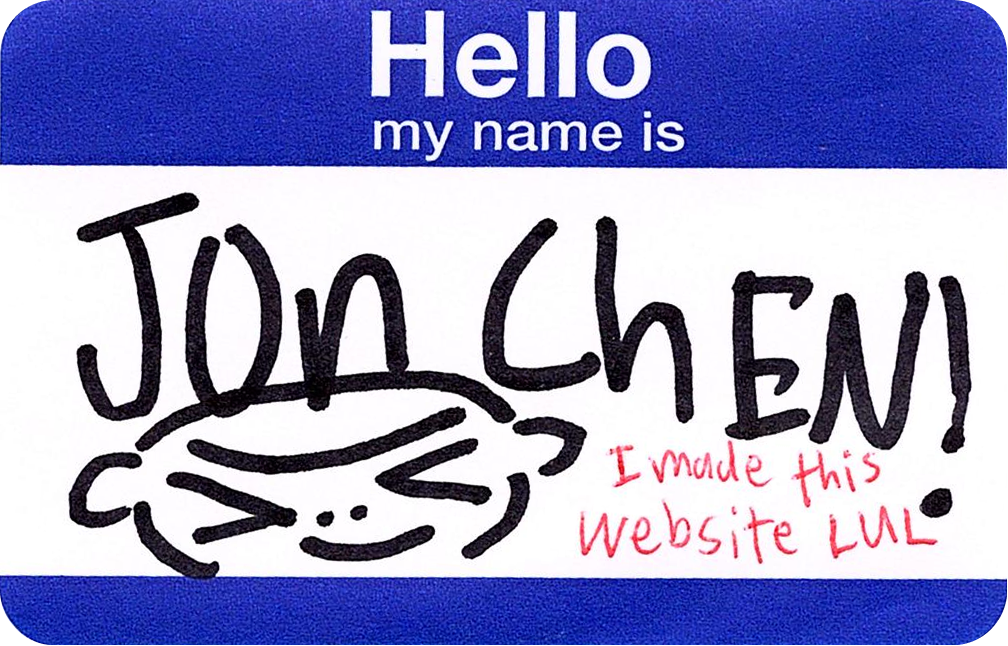 Hello
my name is
Jon ChEN!
I made this
Website LUL